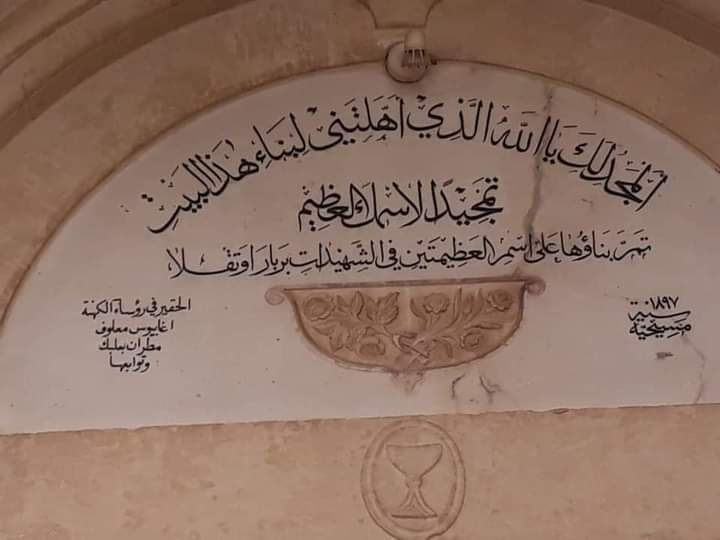 المجد لك يا الله الذي أهلتني لبناء هذا البيت
تمجيدًا لاسمك العظيم
تمّ بناؤها على اسم العظيمتين في الشهيدات بربارا وتقلا
١٨٩٧
سنة
مسيحية
الحقير في رؤساء الكهنة
اغابيوس معلوف
مطران بعلبك
وتوابعها